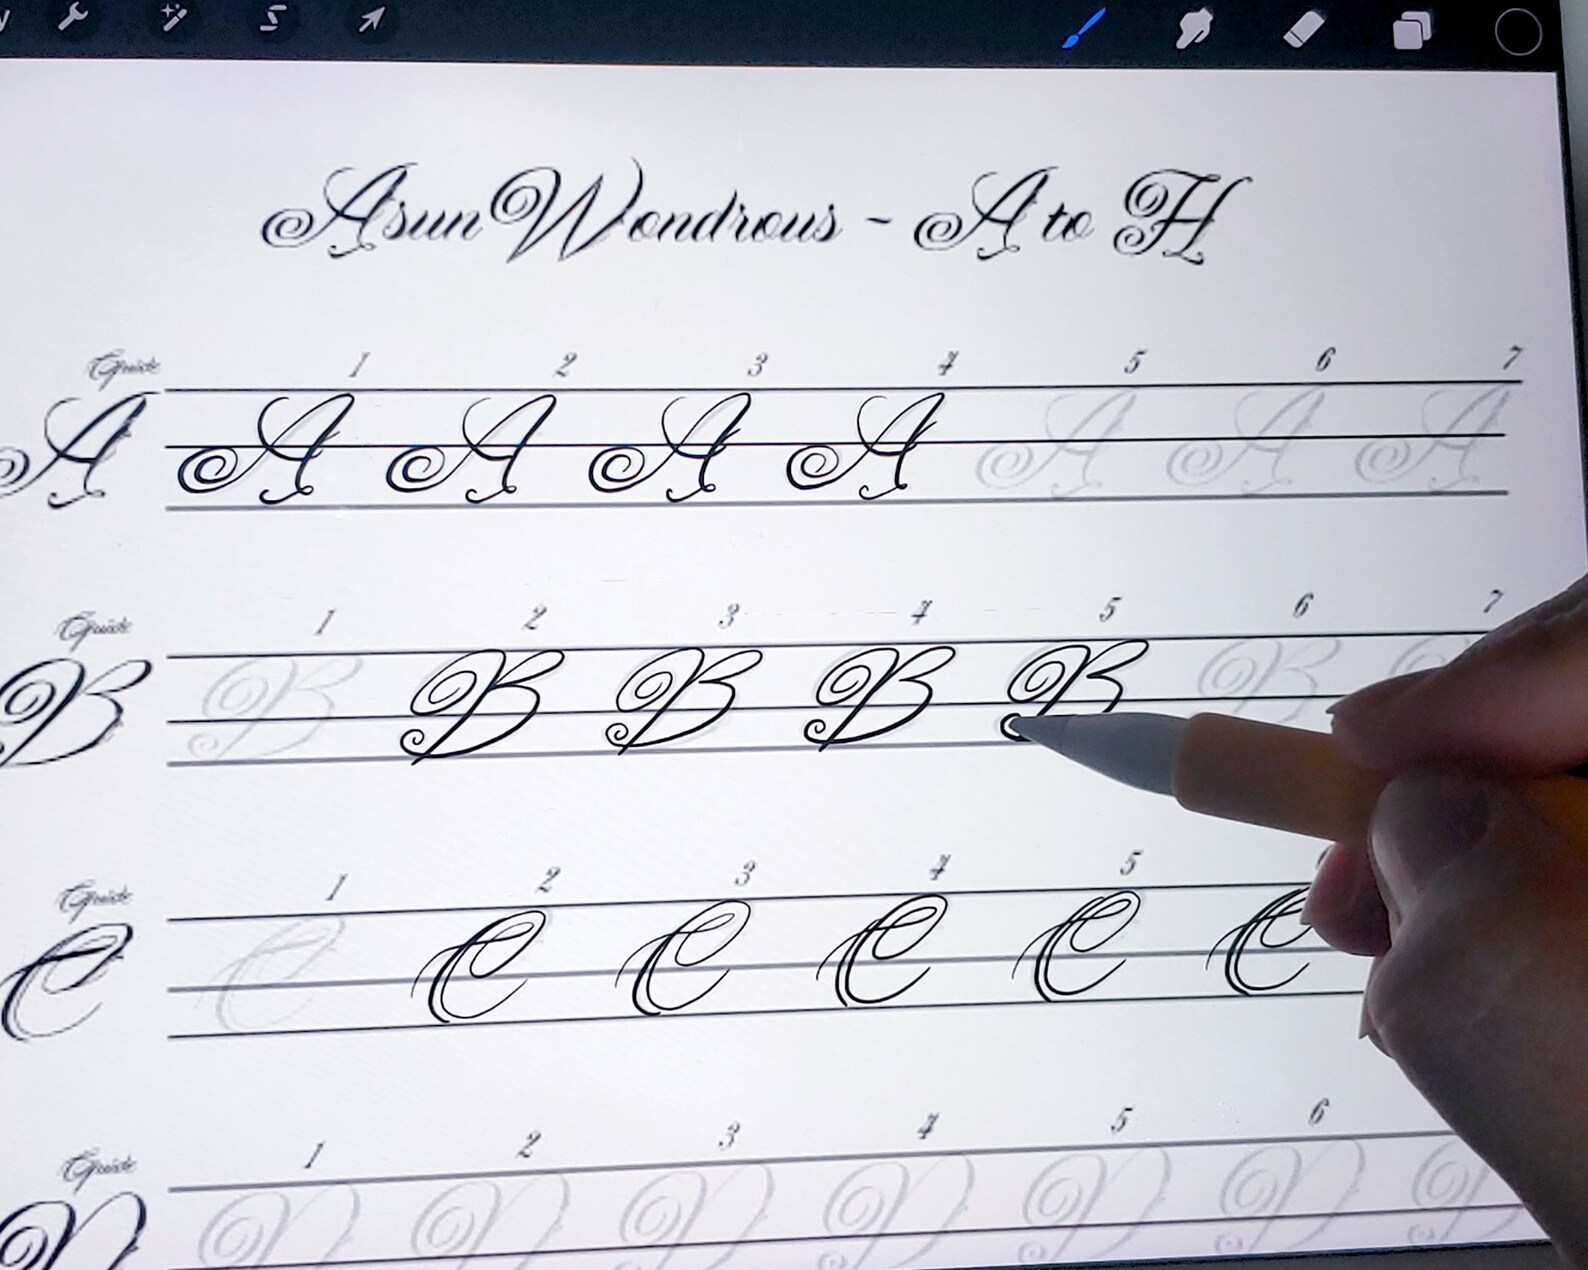 Asun Wondrous ~ A to H
Guide 1 2 3 4 5 6 7
A A A A A A A A
Guide 1 2 3 4 5 6 7
B B B B B B B B
Guide 1 2 3 4 5
C C C C C C C
Guide 1 2 3 4 5 6
D D D D D D D D